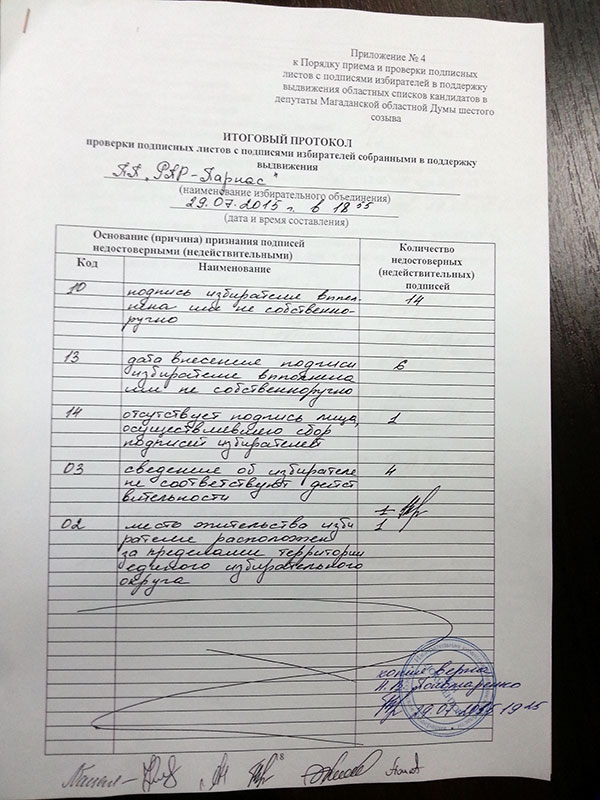 Приложение № 4
к Порядку приема и проверки подписных
листов с подписями избирателей в поддержку
выдвижения областных списков кандидатов в
депутаты Магаданской областной Думы шестого
созыва
ИТОГОВЫЙ ПРОТОКОЛ
проверки подписных листов с подписями избирателей собранными в поддержку
выдвижения
ПП "РПР-Парнас"
(наименование избирательного объединения)
29.07.2015 г. в 18 35
(дата и время составления)
Основание (причина) признания подписей
недостоверными (недействительными)
Количество
недостоверных
(недействительных)
подписей
Код
Наименование
10 подпись избирателя выпол- 14
нена им не собственно-
ручно
13 дата внесения подписи 6
избирателя выполнена
им не собственноручно
14 отсутствует подпись лица, 1
осуществлявшего сбор
подписей избирателей
03 сведения об избирателе 4
не соответствуют дейст
вительности
1
02 место жительства изби 1
рателя расположен
за пределами территории
единого избирательного
округа
копия верна
Н.В. Пономаренко
29.07.2015 19 25
8